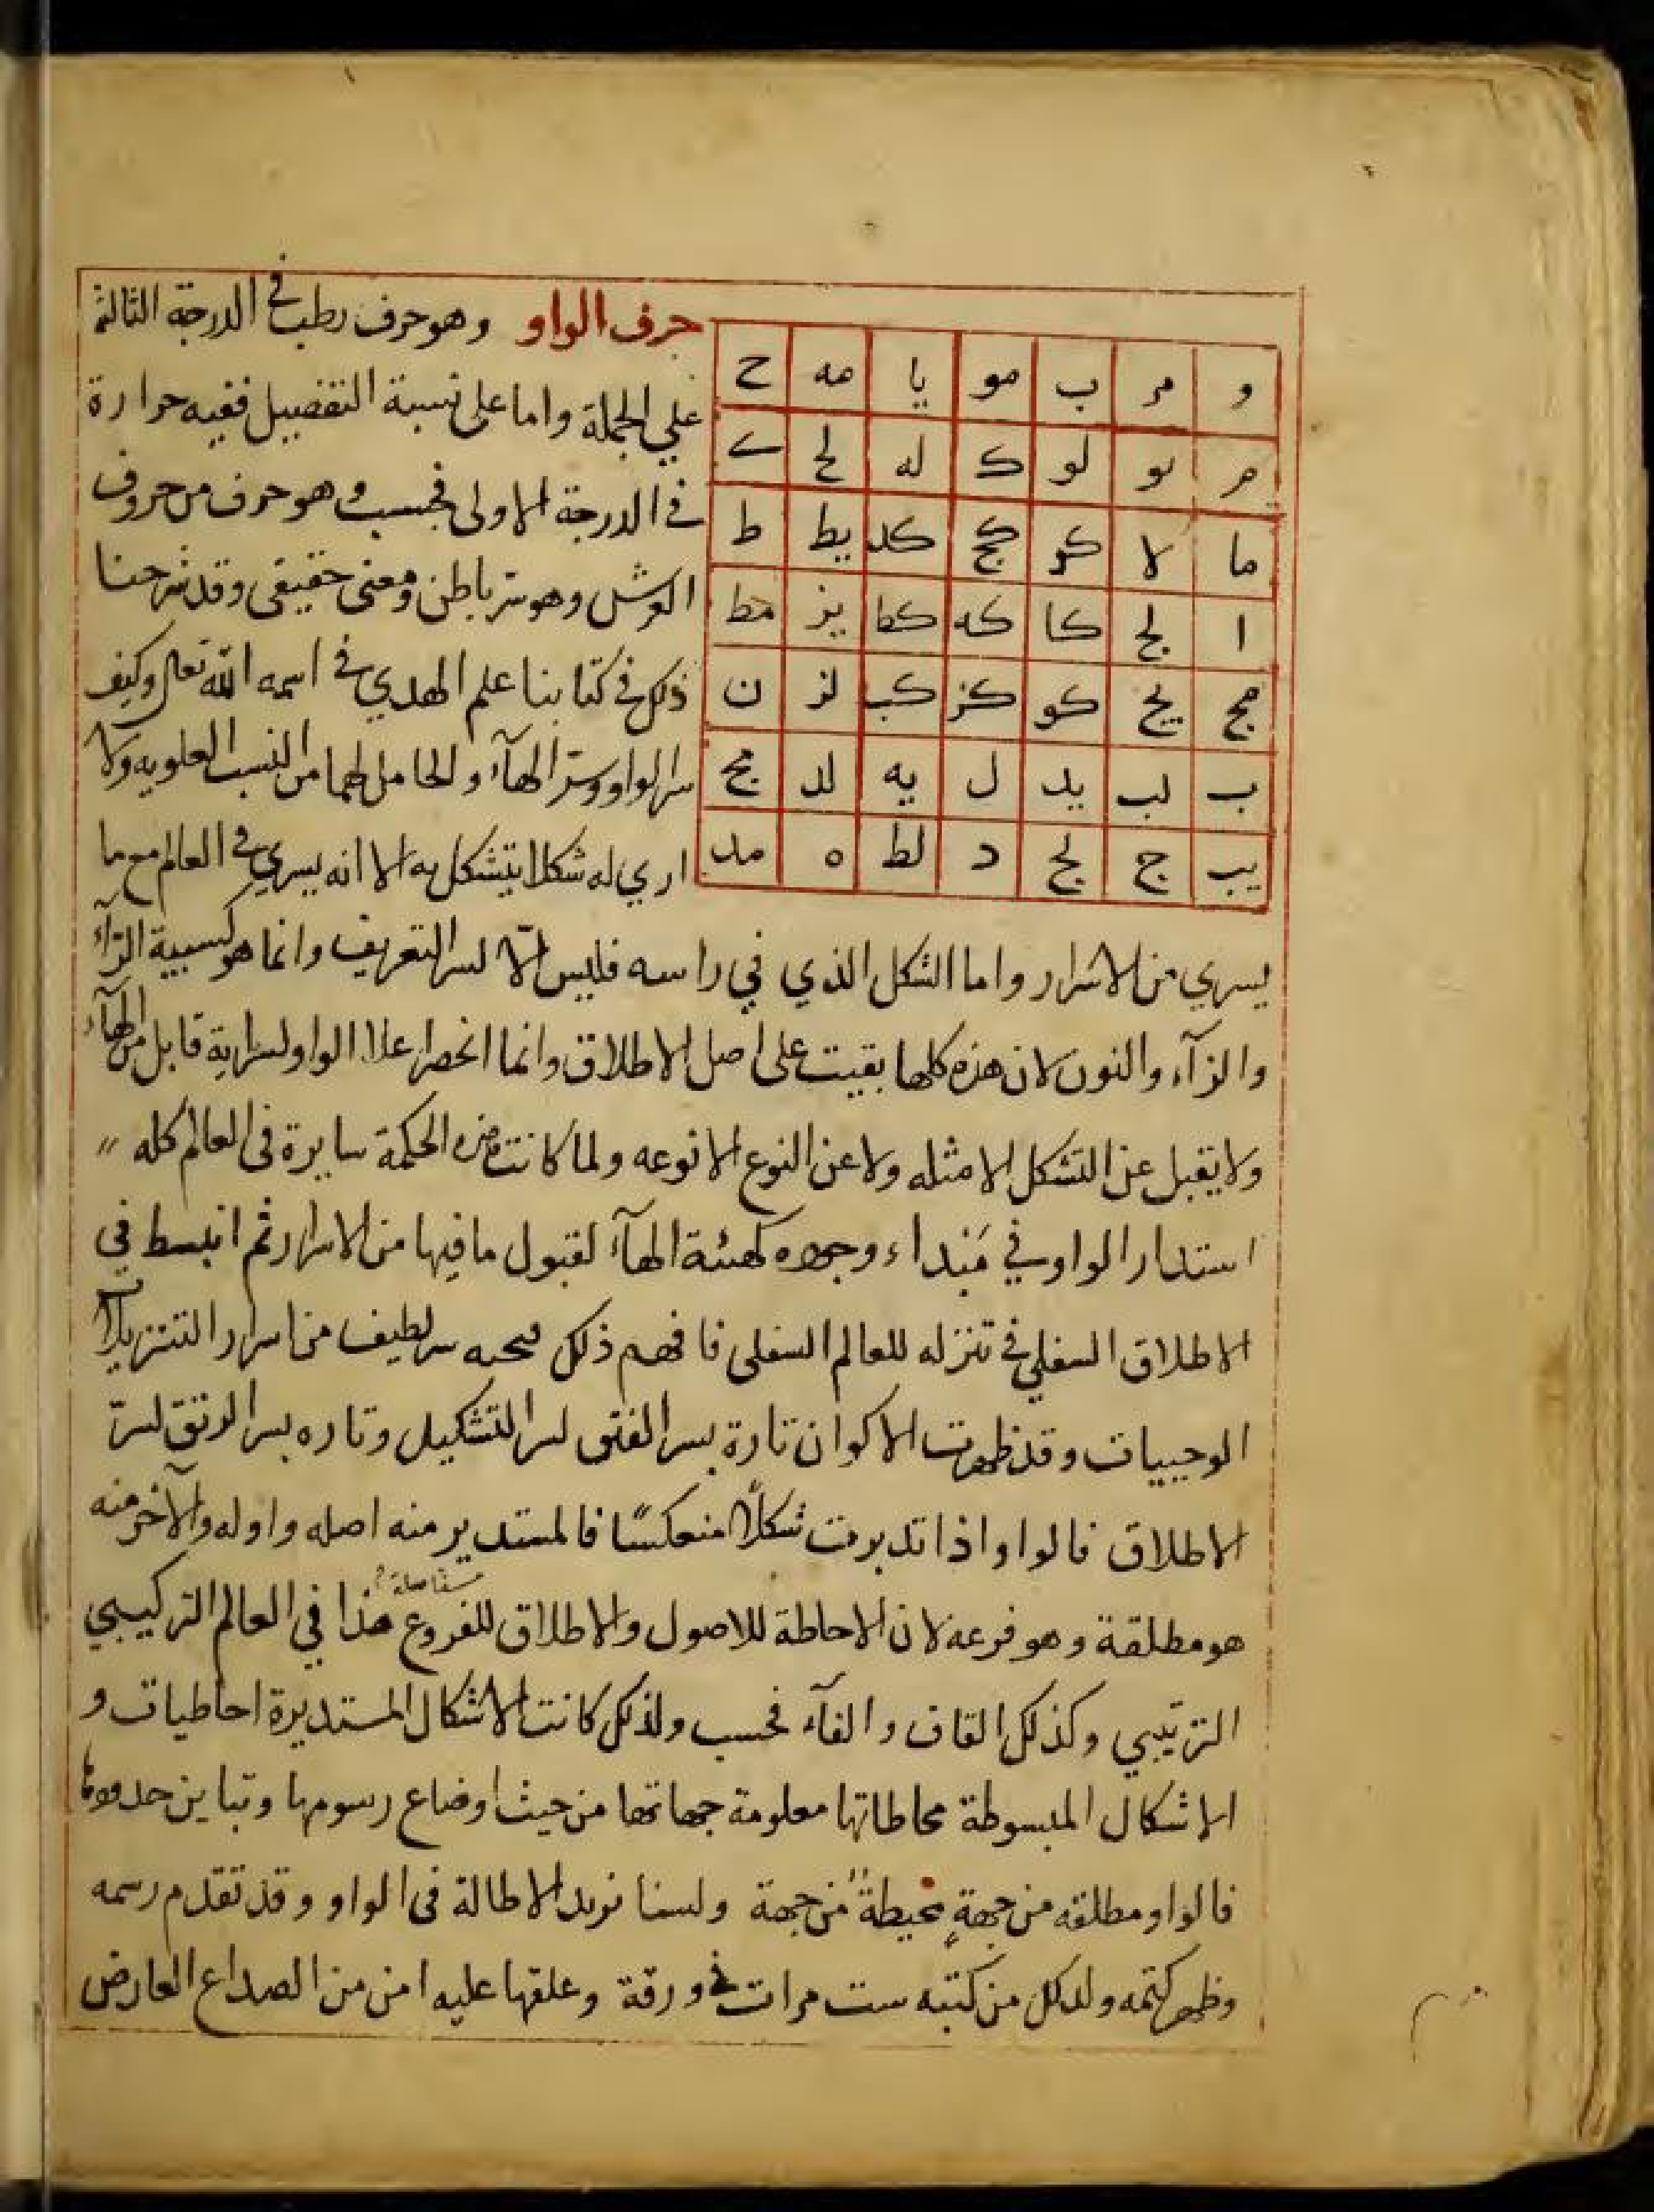 حرف الواو وهو حرف رطب في الدرجة الثالثة
علي الجملة واما على نسبة التفضيل ففيه حرارة
في الدرجة الاولى فحسب وهو حرف من حروف
العرش وهو سر باطن ومعنى حقيقي وقد شرحنا
ذلك في كتابنا علم الهدي في اسمه الله تعالى وكيف
سر الواو وسر الهآء والحامل لهما من النسب العلويه ولا
اري له شكلا يتشكل به الا انه يسري في العالم مع ما
و مر ب مو يا مه ح
م نو لو ک له لح ي
ما لا كو كج كد يط ط
ا لج كا كه كط يز مط
مج يح كو كز كب لز ن
ب لب يد ل يه لد مج
يب ج لح د لط ه مد
يسري من الاسرار واما الشكل الذي في راسه فليس الّا لسر التعريف وانما هو كسبية الرآء
والزآء والنون لان هذه كلها بقيت على اصل الاطلاق وانما انحصار علا الواو لسراية قابل من الهآء
ولا يقبل عن التشكل الا مثله ولا عن النوع الا نوعه ولما كانت هذه الحكمة سايرة في العالم كله
استدار الواو في مَبداء وجهه كهئة الهآء لقبول ما فيها من الاسرار ثم انبسط في
الاطلاق السفلي في تنزله للعالم السفلى فافهم ذلك سر لطيف من اسرار التنزيلات
الوحييات وقد ظهرت الاكوان تارة بسر الفتق لسر التشكيل وتاره بسر الرتق لسرّ
الاطلاق فالواو اذا تدبرت شكلاً منعكسًا فالمستدير منه اصله واوله والآخر منه
هو مطلقة وهو فرعه لان الاحاطة للاصول والاطلاق للفروع هذا في العالم التركيبي
الترتيبي وكذلك القاف والفآء فحسب ولذلك كانت الاشكال المستديرة احاطيات و
الاشكال المبسوطة محاطاتها معلومة جهاتها من حيث اوضاع رسومها وتباين حدودها
فالواو مطلقه من جهةٍ محيطةٌ من جهة ولسنا نريد الاطالة في الواو وقد تقدم رسمه
وظهر كتمه ولذلك من كتبه ست مرات في ورقة وعلقها عليه امن من الصداع العارض